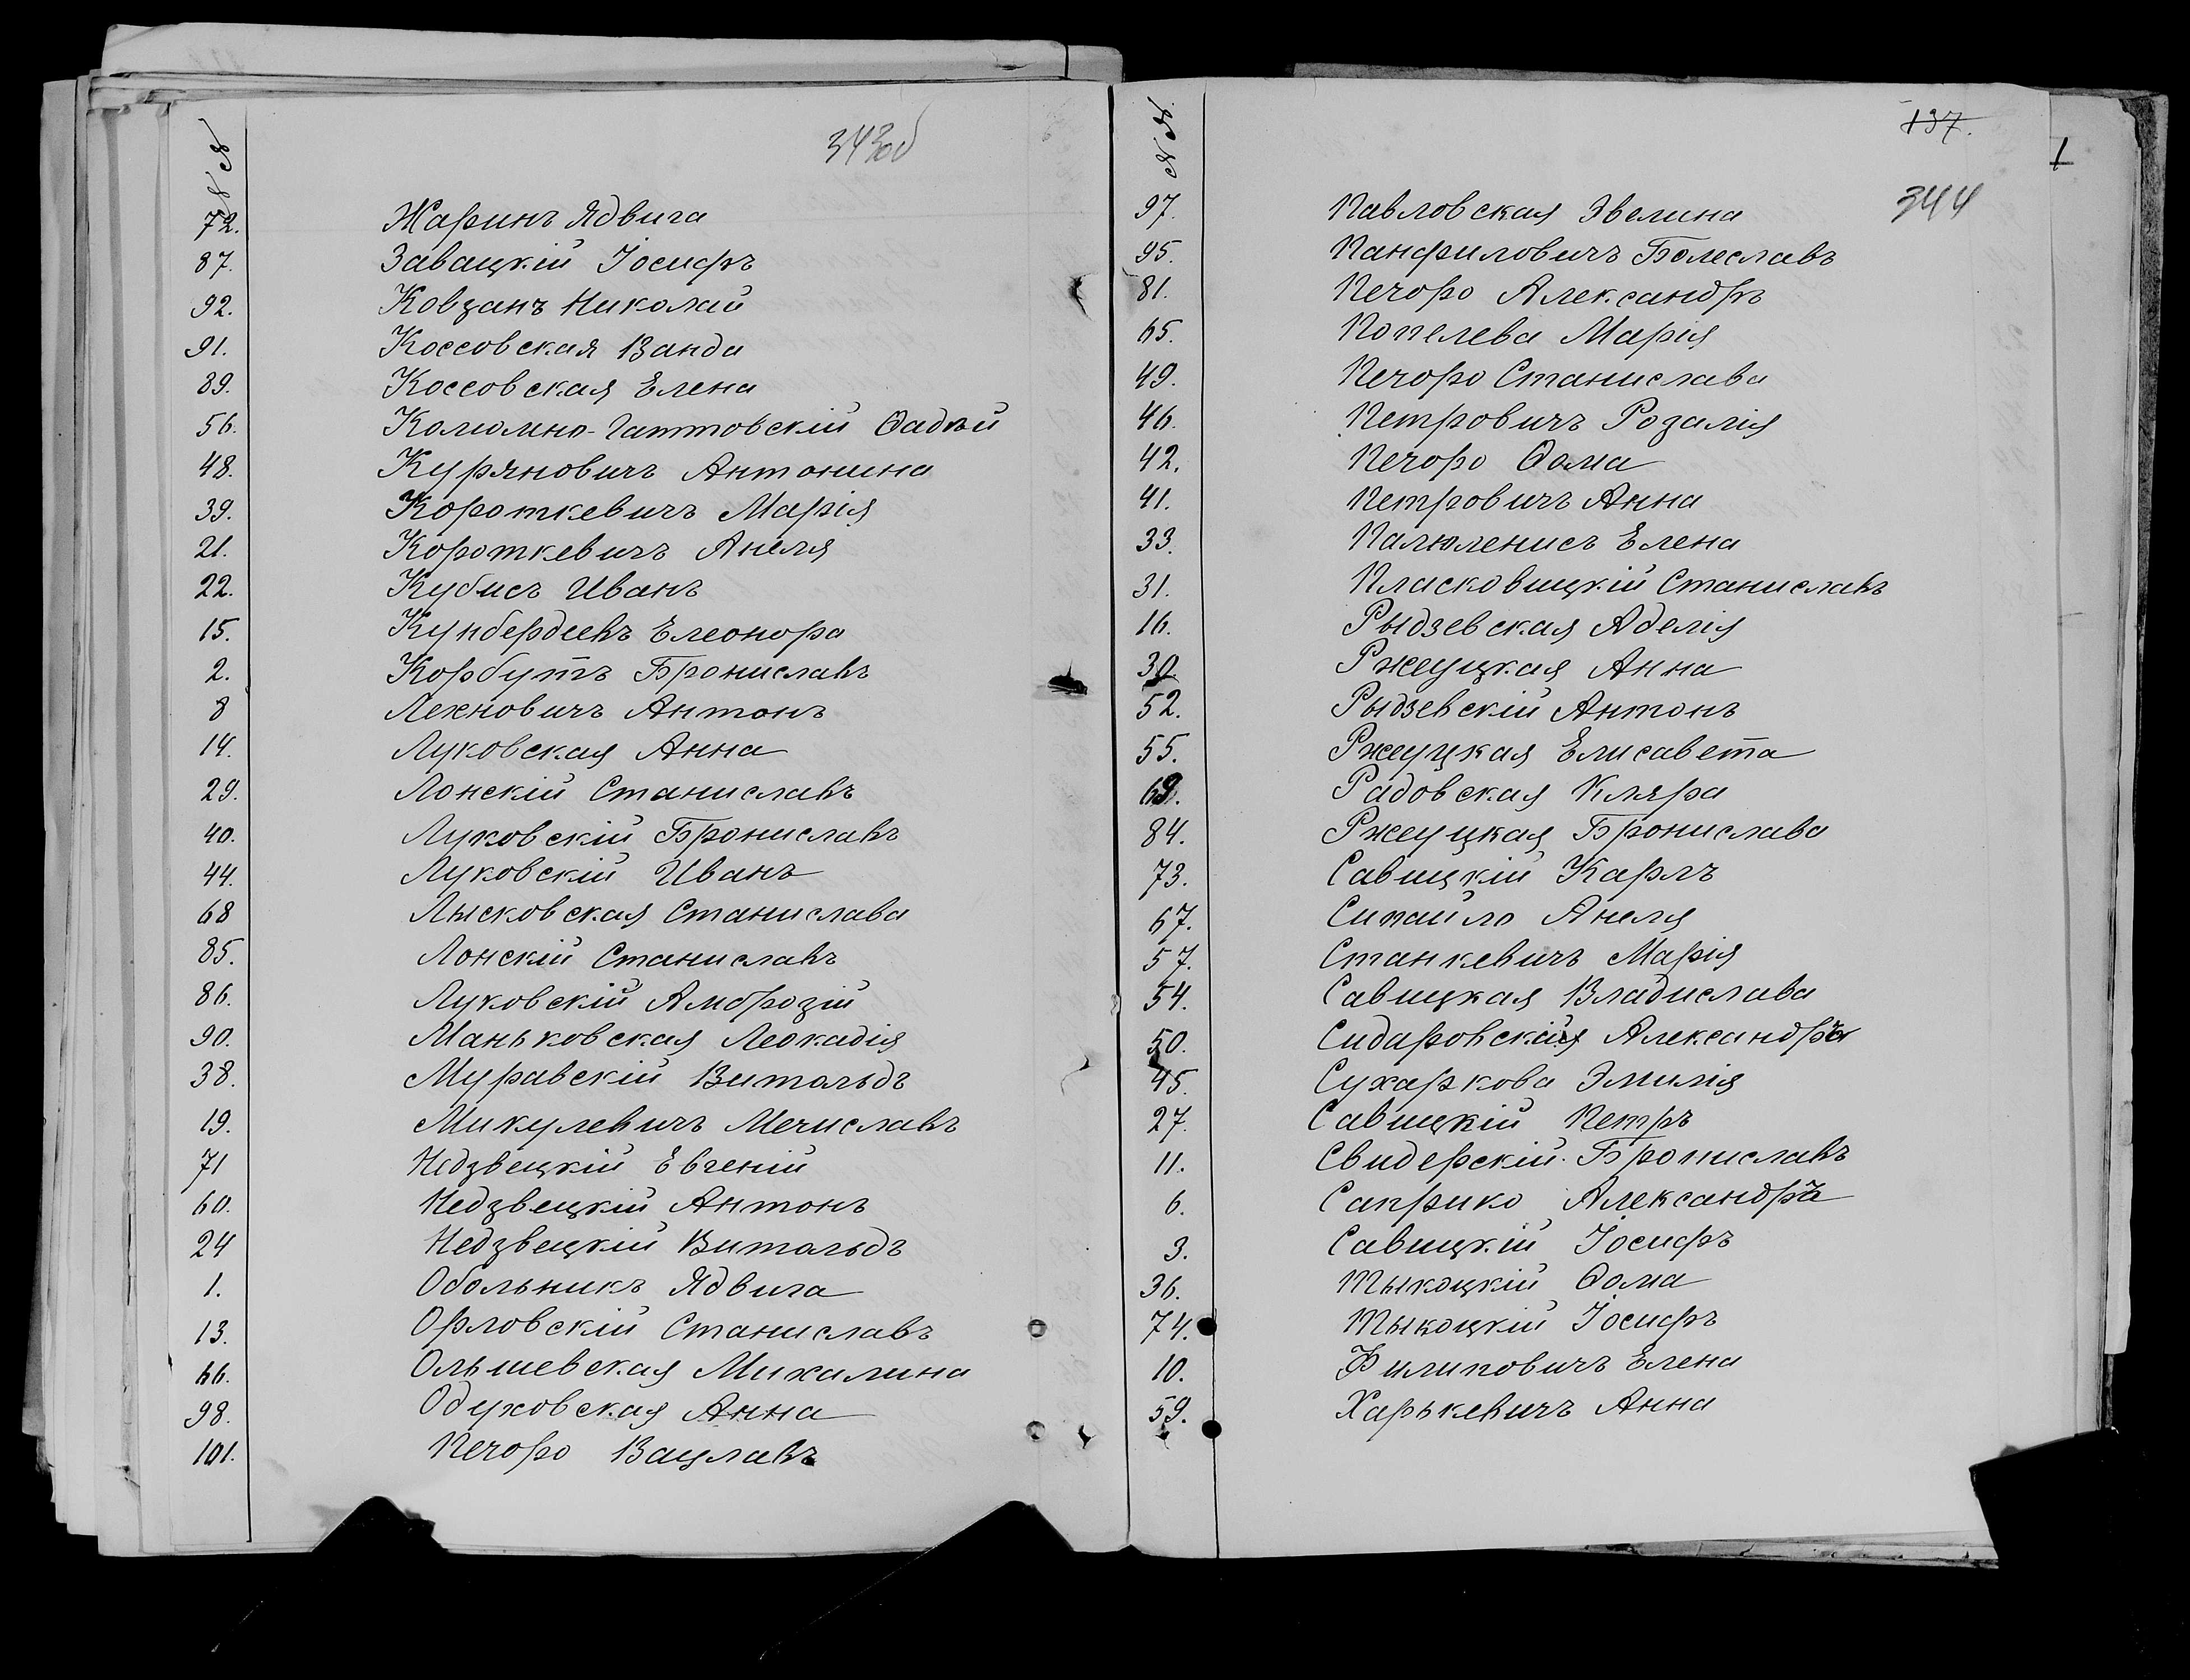 343об
№№
72. Жаринъ Ядвига
87. Завацкій Іосифъ
92. Ковзанъ Николай
91. Коссовская Ванда
89. Коссовская Елена
56. Колюмно-Гаттовскій Ѳадѣй
48. Куряновичъ Антонина
39. Короткевичъ Марія
21. Короткевичъ Анеля
22. Кубисъ Иванъ
15. Кунбердеевъ Елеонора
2. Корбутъ Брониславъ
8 Лехновичъ Антонъ
14. Луковская Анна
29. Лонскій Станиславъ
40. Луковскій Брониславъ
44. Луковскій Иванъ
68 Лысковская Станислава
85. Лонскій Станиславъ
86. Луковскій Амброзій
90. Маньковская Леокадія
38. Муравскій Витольдъ
19. Микулевичъ Мечиславъ
71 Недзвецкій Евгеній
60. Недзвецкій Антонъ
24 Недзвецкій Витольдъ
1. Обольникъ Ядвига
13. Орловскій Станиславъ
66. Ольшевская Михалина
98. Одуховская Анна
101. Печоро Вацлавъ
137.
1
344
№№
97. Павловская Эвелина
95. Панфиловичъ Болеславъ
81. Печоро Александръ
65. Попелева Марія
49. Печоро Станислава
46. Петровичъ Розалія
42. Печоро Ѳома
41. Петровичъ Анна
33. Палюленисъ Елена
31. Пласковицкій Станиславъ
16. Рыдзевская Аделія
30 Ржеуцкая Анна
52. Рыдзевскій Антонъ
55. Ржеуцкая Елисавета
Радовская Кляра
84. Ржеуцкая Бронислава
73. Савицкій Карлъ
67. Сипайло Анеля
57. Станкевичъ Марія
54. Савицкая Владислава
50. Александра
45. Сухаркова Эмилія
27. Савицкій Петръ
11. Свидерскій Брониславъ
6. Саприко Александра
3. Савицкій Іосифъ
36. Тыкоцкій Ѳома
74. Тыкоцкій Іосифъ
10. Филиповичъ Елена
59. Харькевичъ Анна